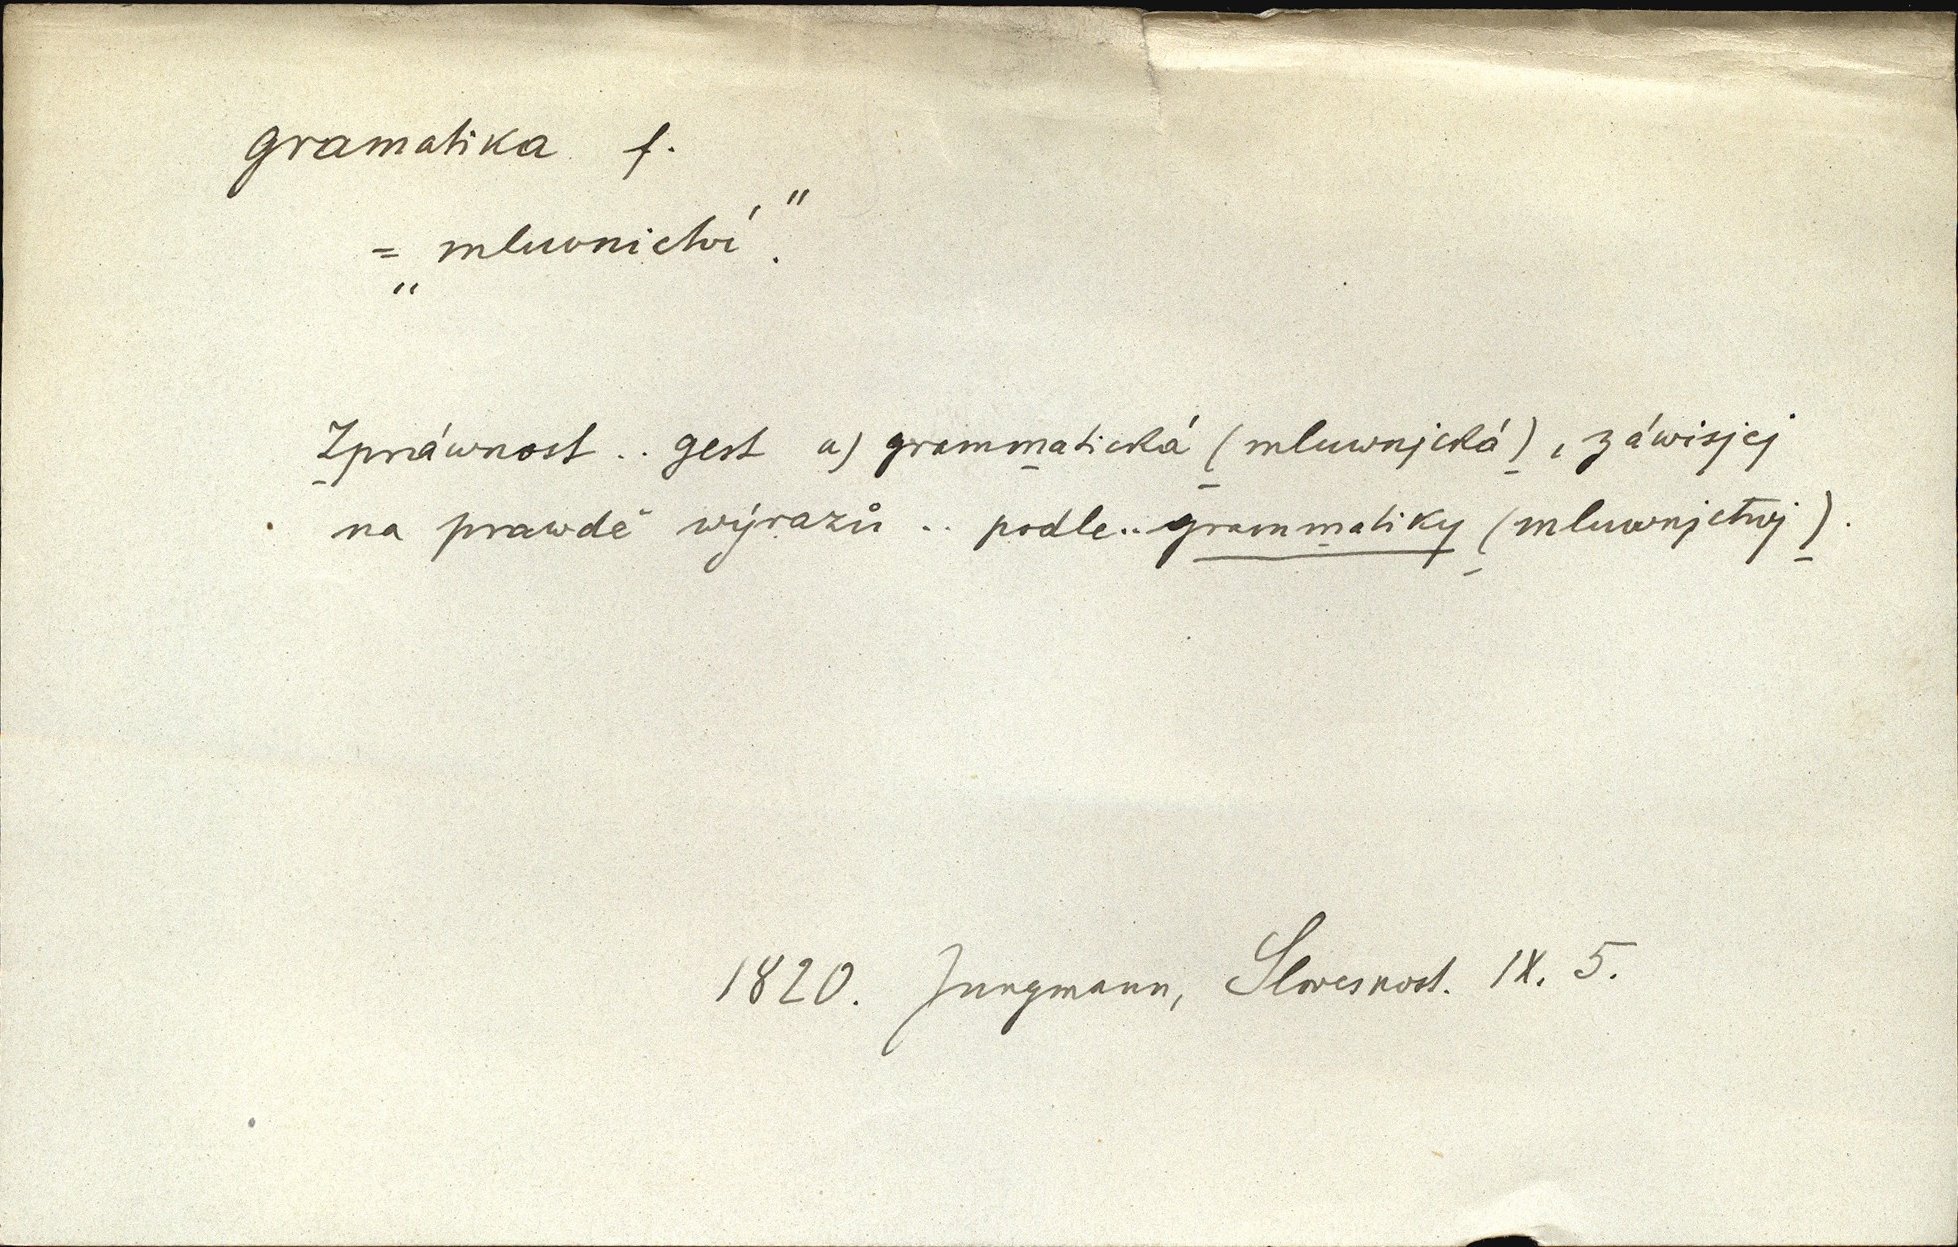 gramatika f.
= „mluvnictví".
Zpráwnost .. gest a) grammatická (mluwnjcká), záwisjcj
na prawdě wýrazů .. podle .. grammatiky (mluwnjctwj).
1820. Jungmann, Slovesnost. IX. 5.